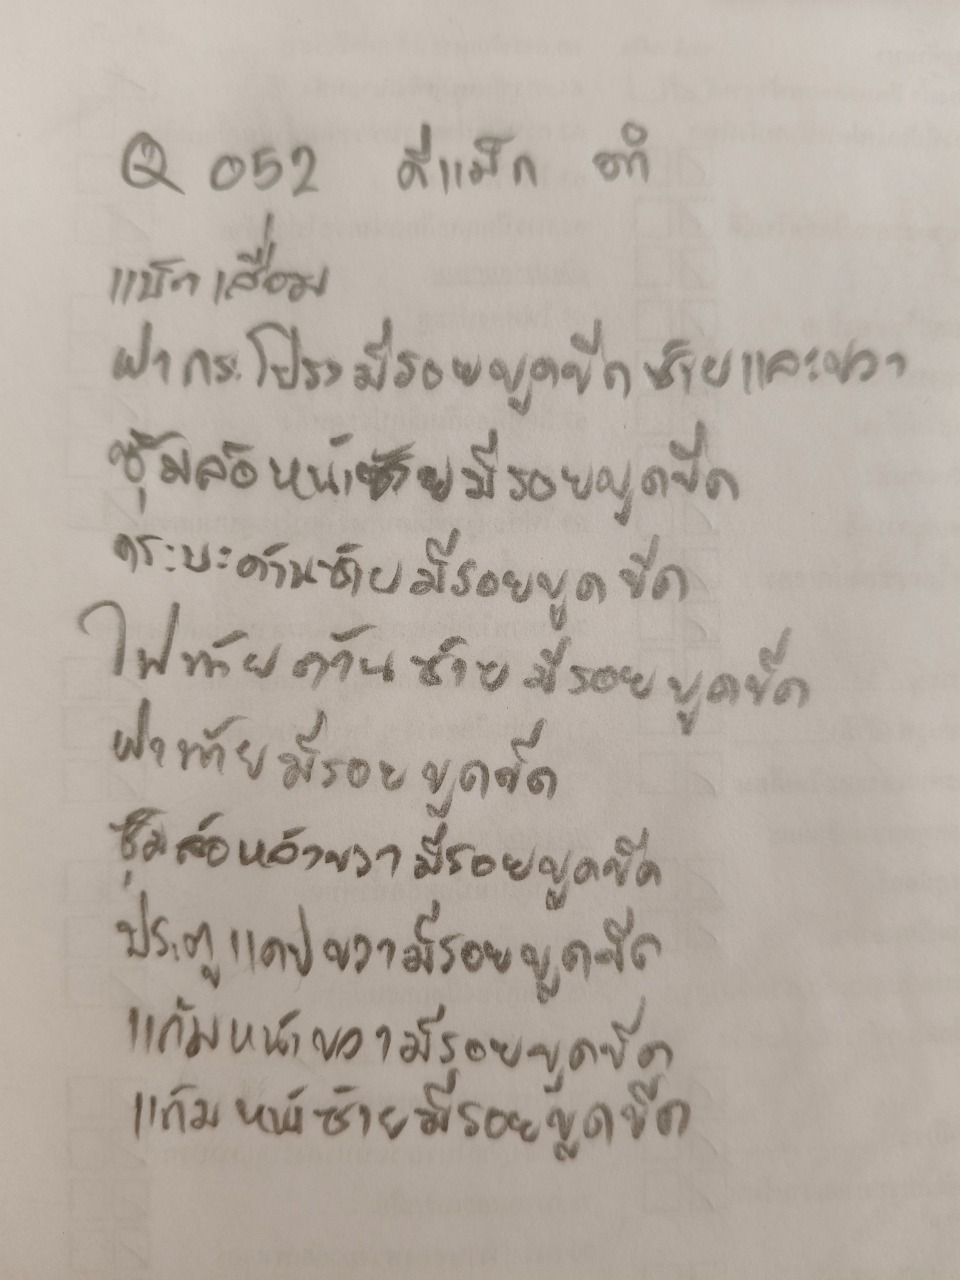 Q 052 ดีแม็ก ดำ
แบ็กเสื่อม
ฝากระโปรงมีรอยขูดขีดซ้ายและขวา
ซุ้มล้อหน้าซ้ายมีรอยขูดขีด
กระบะด้านซ้ายมีรอยขูดขีด
ไฟท้ายด้านซ้ายมีรอยขูดขีด
ฝาท้ายมีรอยขูดขีด
ซุ้มล้อหลังขวามีรอยขูดขีด
ประตูแคปขวามีรอยขูดขีด
แก้มหน้าขวามีรอยขูดขีด
แก้มหน้าซ้ายมีรอยขูดขีด